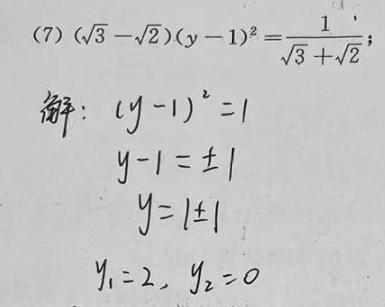 (7) (√3 − √2)(y − 1)² = 1/(√3 + √2);
解: (y − 1)² = 1
y − 1 = ±1
y = 1 ± 1
y₁ = 2, y₂ = 0